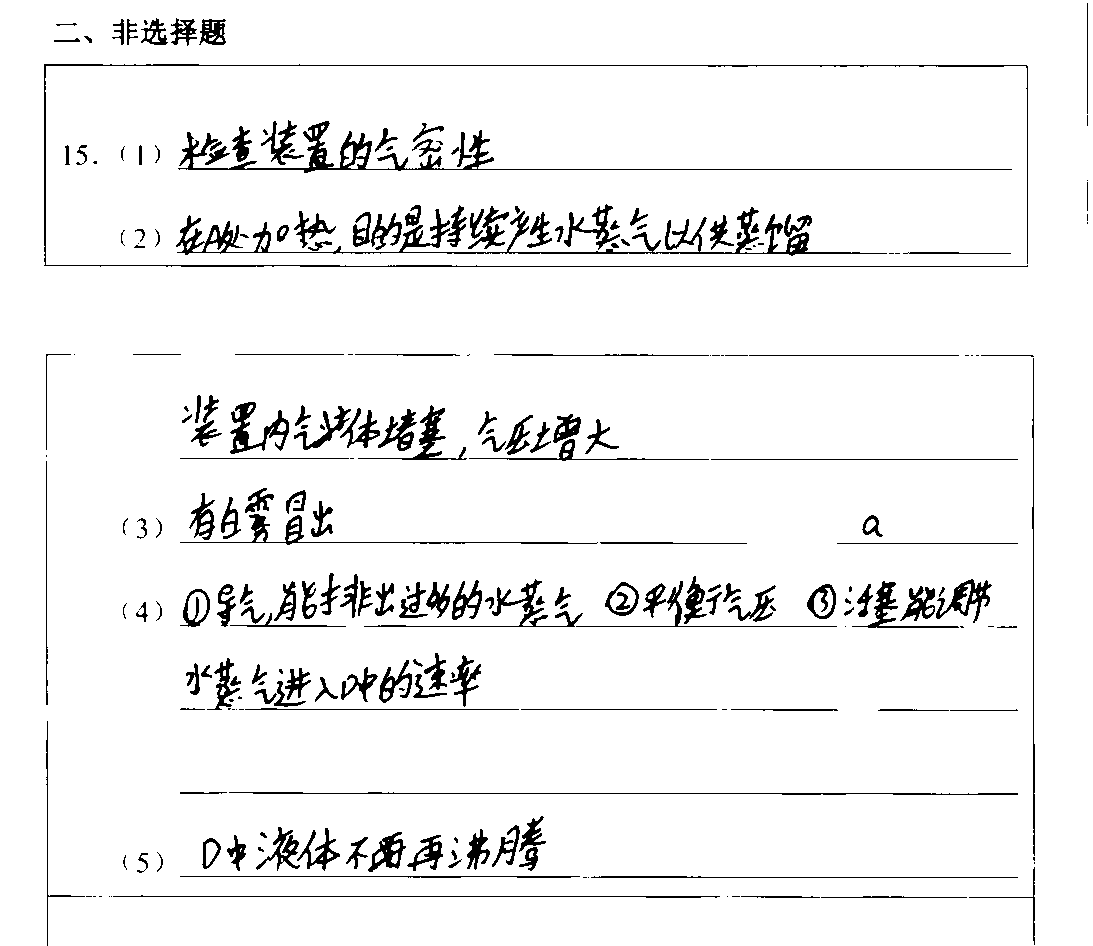 二、非选择题
15.（1）检查装置的气密性
（2）在A处加热,目的是持续产生水蒸气以供蒸馏
装置内气体堵塞,气压增大
（3）有白雾冒出 a
（4）①导气,能排出过多的水蒸气 ②平衡气压 ③活塞能调节
水蒸气进入D中的速率
（5）D中液体不再沸腾